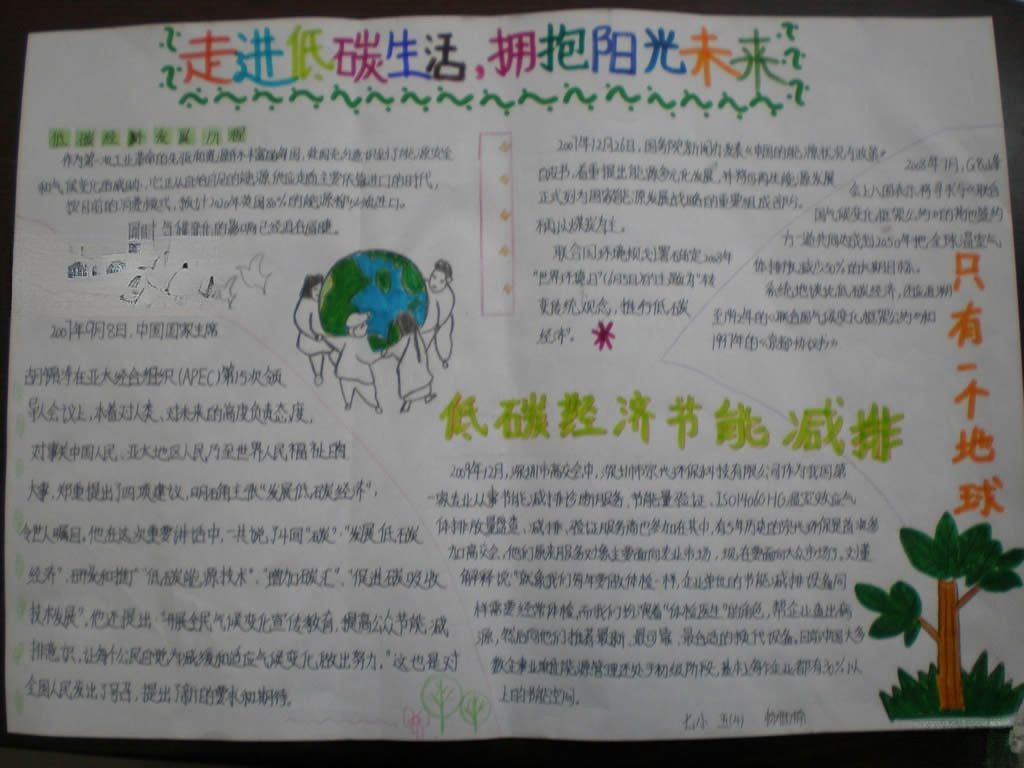 走进低碳生活,拥抱阳光未来
低碳经济发展历程
作为第一次工业革命的先驱和资源并不丰富的岛国,英国充分意识到了能源安全
和气候变化的威胁,它正从自给自足的能源供应走向主要依靠进口的时代,
按目前的消费模式,预计2020年英国80%的能源都必须进口。
同时,气候变化的影响已经迫在眉睫。
2007年9月8日,中国国家主席
胡锦涛在亚太经合组织(APEC)第15次领
导人会议上,本着对人类、对未来的高度负责态度,
对事关中国人民、亚太地区人民乃至世界人民福祉的
大事,郑重提出了四项建议,明确主张"发展低碳经济",
令世人瞩目。他在这次重要讲话中,一共说了4回"碳":"发展低碳
经济"、研发和推广"低碳能源技术"、"增加碳汇"、"促进碳吸收
技术发展"。他还提出:"开展全民气候变化宣传教育,提高公众节能减
排意识,让每个公民自觉为减缓和适应气候变化做出努力。"这也是对
全国人民发出了号召,提出了新的要求和期待。
2007年12月26日,国务院新闻办发表《中国的能源状况与政策》
白皮书,着重提出能源多元化发展,并将可再生能源发展
正式列为国家能源发展战略的重要组成部分,
不再以煤炭为主。
联合国环境规划署确定2008年
"世界环境日"(6月5日)的主题为"转
变传统观念,推行低碳
经济"。
2008年7月,G8峰
会上八国表示将寻求与《联合
国气候变化框架公约》的其他签约
方一道共同达成到2050年把全球温室气
体排放减少50%的长期目标。
系统地谈论低碳经济,还应追溯
至1992年的《联合国气候变化框架公约》和
1997年的《京都协议书》
只有一个地球
低碳经济节能减排
2009年12月,深圳市高交会中,深圳市宗兴环保科技有限公司作为我国第
一家专业从事节能减排诊断服务、节能量验证、ISO14060HG温室效应气
体排放量盘查、减排、验证服务商也参加在其中,有5年历史的宗兴环保是首次参
加高交会,他们原来服务对象主要面向专业市场,现在要面向大众市场了,刘董
解释说"就象我们每年要做体检一样,企业单位的节能减排设备同
样需要经常体检,而我们扮演着"体检医生"的角色,帮企业查出病
源,然后向他们推荐最新、最可靠、最合适的换代设备,目前中国大多
数企事业单位能源管理还处于初级阶段,基本上每个企业都有30%以
上的节能空间。
七小 五(4)